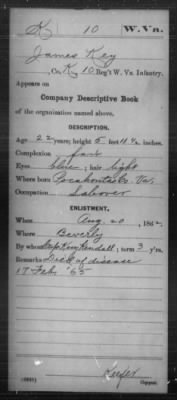 K 10 W. Va.
James Key
, Co. K, 10 Reg't W. Va. Infantry.
Appears on
Company Descriptive Book
of the organization named above.
DESCRIPTION.
Age 22 years; height 5 feet 11 ½ inches.
Complexion fair
Eyes blue; hair light
Where born Pocahontas Co. Va.
Occupation Laborer
ENLISTMENT.
When Aug. 20, 1862.
Where Beverly
By whom Kendall; term 3 y'rs.
Remarks Died of disease
17 Feby '65
Keefer
Copyist.